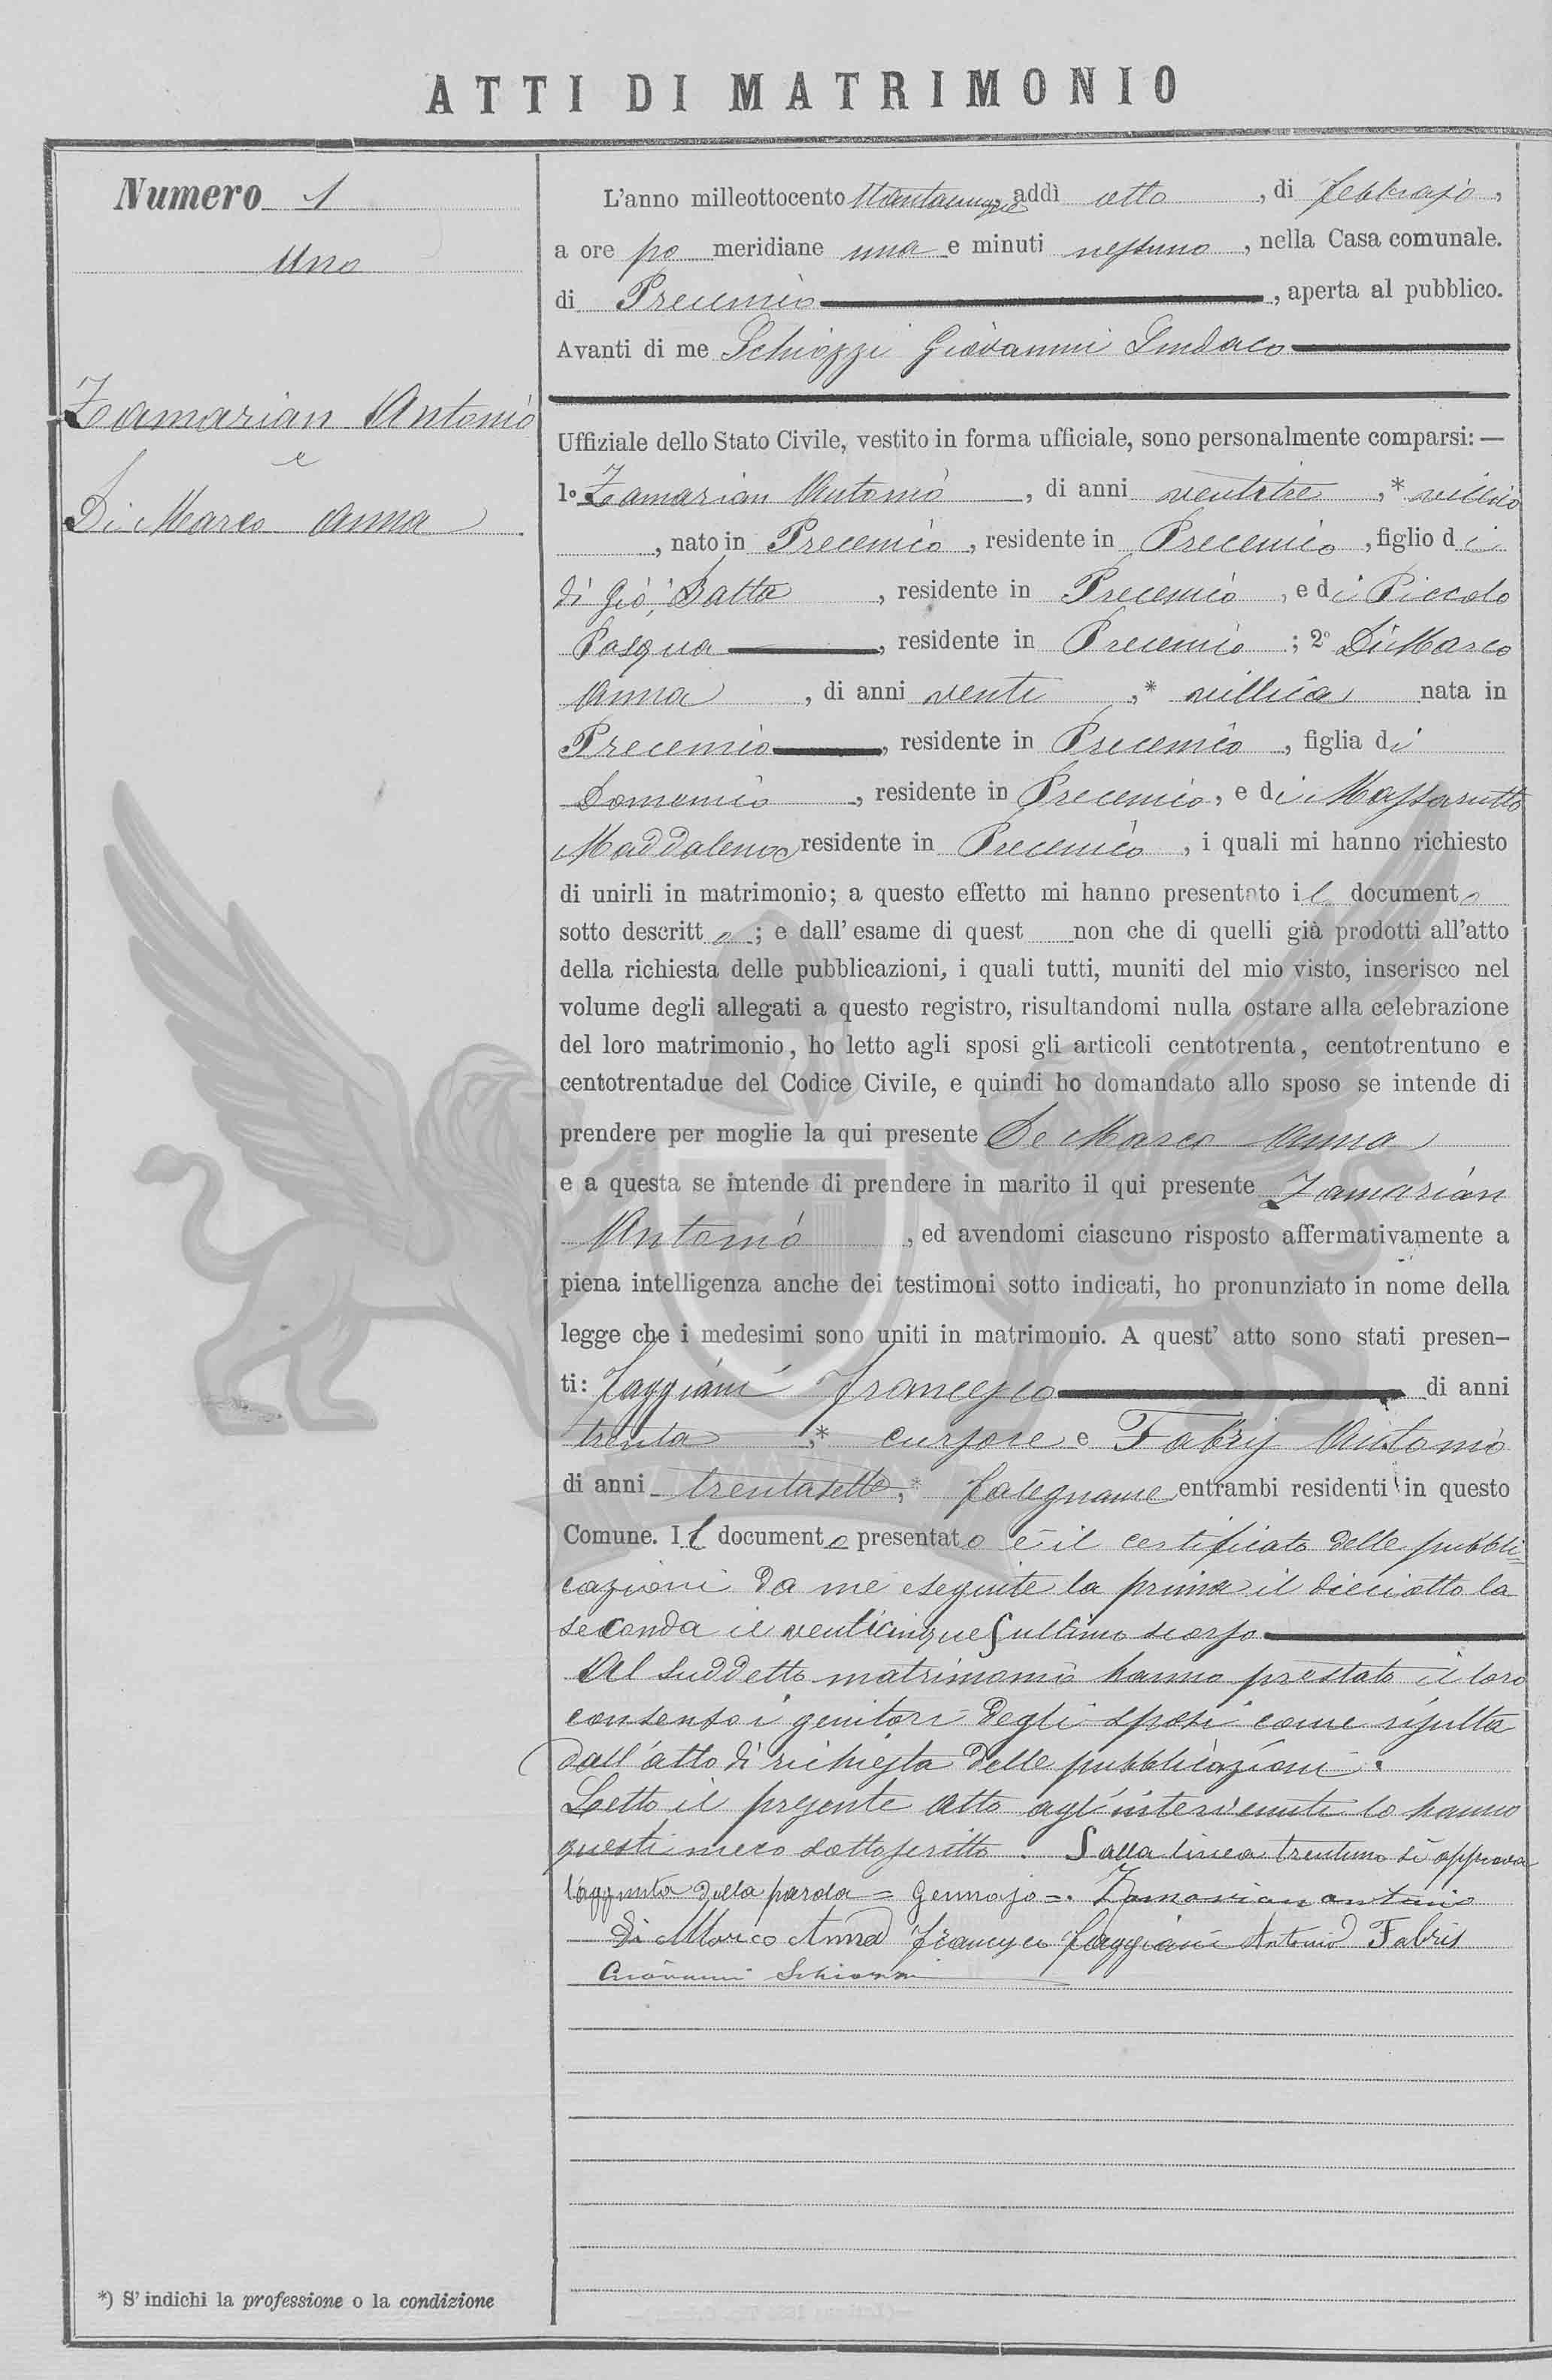 ATTI DI MATRIMONIO
Numero 1
Uno
Zamarian Antonio
e
Di Marco Anna
L'anno milleottocento addì otto, di febbrajo,
a ore po meridiane una e minuti nessuno, nella Casa comunale.
di Precenico, aperta al pubblico.
Avanti di me Schiozzi Giovanni Sindaco
Uffiziale dello Stato Civile, vestito in forma ufficiale, sono personalmente comparsi: —
1º Zamarian Antonio, di anni ventitre,* villico
, nato in Precenico, residente in Precenico, figlio di
di Gio: Batta, residente in Precenico, e di Piccolo
Pasqua, residente in Precenico; 2º Di Marco
Anna, di anni venti,* villica nata in
Precenico, residente in Precenico, figlia di
Domenico, residente in Precenico, e di Massarutto
Maddalena residente in Precenico, i quali mi hanno richiesto
di unirli in matrimonio; a questo effetto mi hanno presentato il documento
sotto descritto; e dall'esame di quest non che di quelli già prodotti all'atto
della richiesta delle pubblicazioni, i quali tutti, muniti del mio visto, inserisco nel
volume degli allegati a questo registro, risultandomi nulla ostare alla celebrazione
del loro matrimonio, ho letto agli sposi gli articoli centotrenta, centotrentuno e
centotrentadue del Codice Civile, e quindi ho domandato allo sposo se intende di
prendere per moglie la qui presente De Marco Anna
e a questa se intende di prendere in marito il qui presente Zamarian
Antonio, ed avendomi ciascuno risposto affermativamente a
piena intelligenza anche dei testimoni sotto indicati, ho pronunziato in nome della
legge che i medesimi sono uniti in matrimonio. A quest' atto sono stati presen-
ti: Faggiani Francesco di anni
trenta,* cursore e Fabrij Antonio
di anni trentasette,* falegname entrambi residenti in questo
Comune. Il documento presentato è il certificato delle pubbli=
cazioni da me eseguite la prima il dieciotto la
seconda il venticinque ∫ ultimo scorso
Al suddetto matrimonio hanno prestato il loro
consenso i genitori degli sposi come risulta
dall'atto di richiesta delle pubblicazioni.
Letto il presente atto agl'intervenuti lo hanno
questi meco sottoscritto. ∫ alla linea trentuno si approva
l'aggiunta della parola = Gennajo =. Zamarian antonio
Di Marco Anna Francesco Faggiani Antonio Fabris
Giovanni Schiozzi
*) S' indichi la professione o la condizione